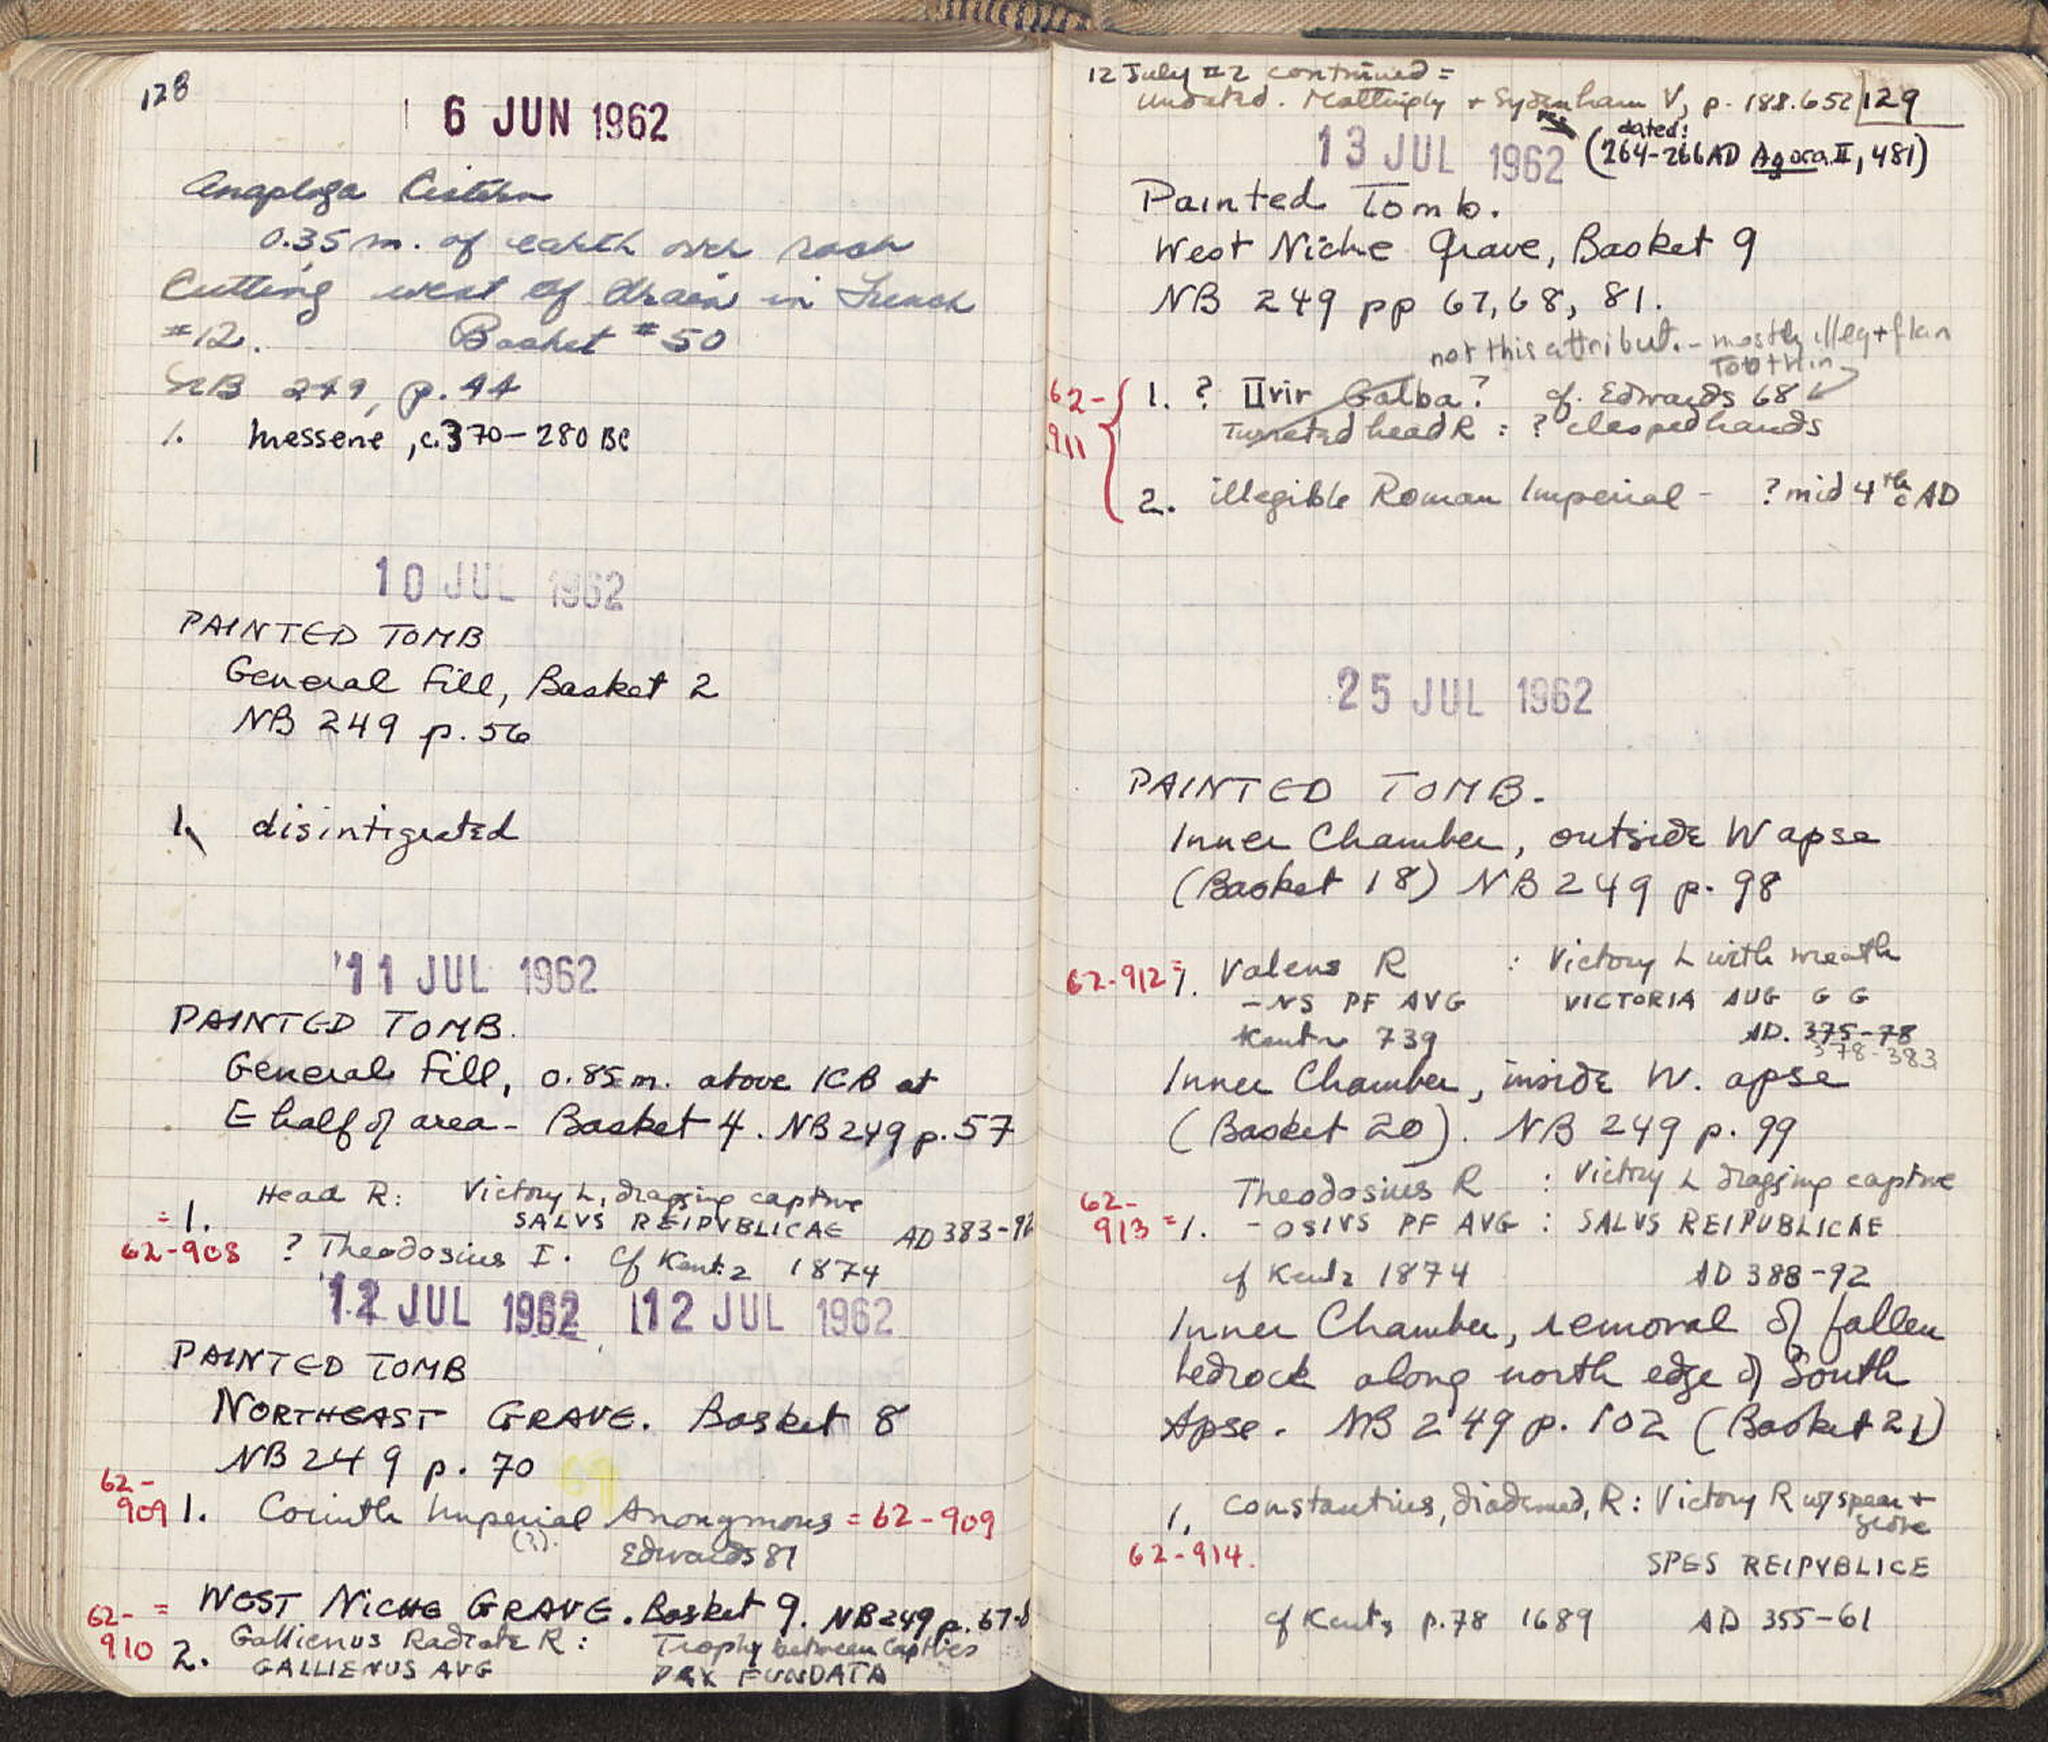 128
6 JUN 1962
Anaploga Cistern
0.35 m. of earth over rock
Cutting west of drain in Trench
#12. Basket #50
NB 249, p. 44
1. Messene, c.370-280 BC
10 JUL 1962
PAINTED TOMB
General Fill, Basket 2
NB 249 p. 56
1. disintigrated
11 JUL 1962
PAINTED TOMB.
General Fill, 0.85m. above ICB at
E half of area - Basket 4. NB 249 p. 57
Head R: Victory L, dragging captive
= 1. SALVS REIPVBLICAE AD 383-92
62-908 ? Theodosius I. Cf Kent 2 1874
12 JUL 1962 12 JUL 1962
PAINTED TOMB
NORTHEAST GRAVE. Basket 8
NB 249 p. 70 69
62-
909 1. Corinth Imperial Anonymous = 62-909
(?). Edwards 81
62- = WEST NICHE GRAVE. Basket 9. NB 249 p. 67-8
910 2. Gallienus Radiate R: Trophy between Captives
GALLIENUS AVG PAX FUNDATA
12 July #2 continued =
undated. Mattingly + Sydenham V, p. 188.652 129
13 JUL 1962 (dated: 264-266 AD Agora II, 481)
Painted Tomb.
West Niche Grave, Basket 9
NB 249 pp 67, 68, 81.
not this attribut. - mostly illeg + flan
too thin
62- 1. ? IIvir Galba? cf. Edwards 68
911 Turreted head R : ? clasped hands
2. illegible Roman Imperial - ? mid 4th c AD
25 JUL 1962
PAINTED TOMB.
Inner Chamber, outside W apse
(Basket 18) NB 249 p. 98
62-912 = 1. Valens R : Victory L with wreath
-NS PF AVG VICTORIA AUG G G
Kent 2 739 AD. 375-78
378-383
Inner Chamber, inside W. apse
(Basket 20). NB 249 p. 99
62- Theodosius R : Victry L dragging captive
913 = 1. - OSIVS PF AVG : SALVS REIPUBLICAE
cf Kent 2 1874 AD 388-92
Inner Chamber, removal of fallen
bedrock along north edge of South
Apse. NB 249 p. 102 (Basket 21)
1. Constantius, diademed, R: Victory R w/ spear +
globe
62-914. SPES REIPVBLICE
cf Kent 2 p.78 1689 AD 355-61